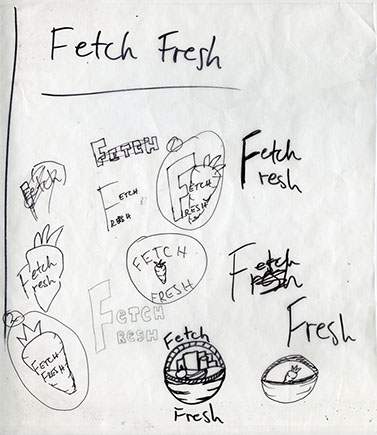 Fetch Fresh
FETCH
Fetch
resh
Fetch
FETCH
RESH
FETCH
RESH
Fetch
fresh
FETCH
FRESH
Fetch
FETCH
RESH
Fresh
2
FETCH
FRESH
Fetch
Fresh